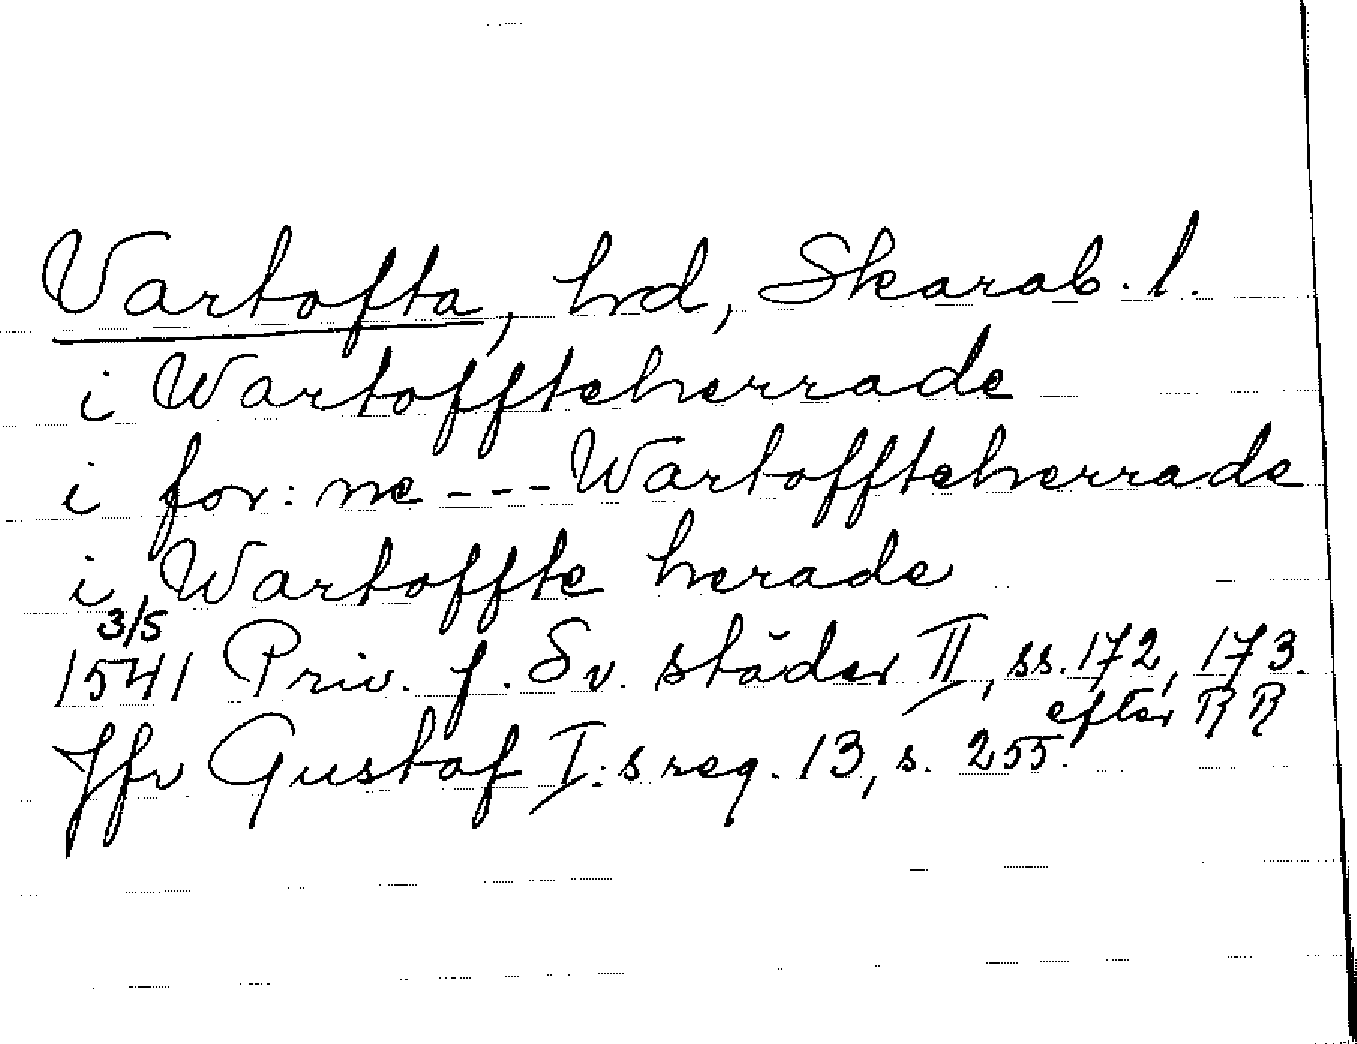 Vartofta, hrd, Skarab. l.
i Wartoffteherrade
i for: ne --- Wartoffteherrade
i Wartoffte herade
3/5
1541 Priv. f. Sv. städer II, ss. 172, 173.
efter RR
Jfr Gustaf I:s reg. 13, s. 255.